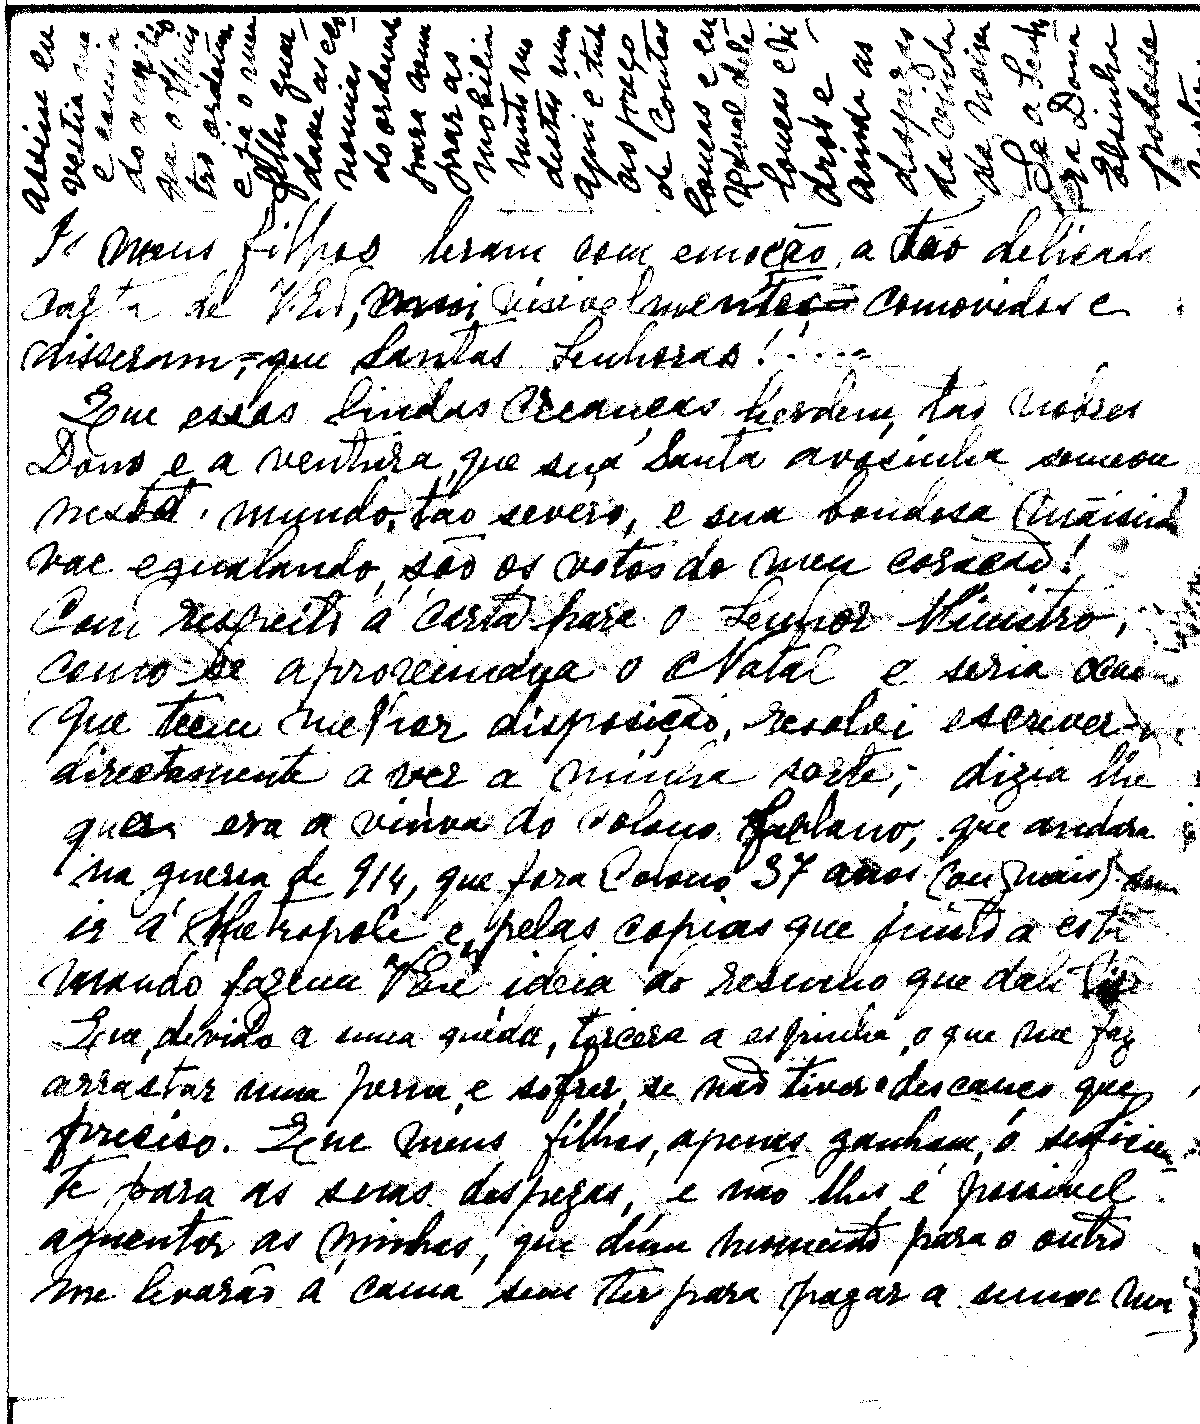 assim eu
vestia
e comia
do
que o Minis
tro
e já o meu
filho guar
dava as eco
nomias
do ordenado
para com
prar as
mobilia
muito
destes um
aqui e tudo
ao preço
de Contas
loucas e eu
loucas
e
ainda as
despezas
da vinda
da
Se a Senho
ra Dona
Zézinha
podesse
Os meus filhos leram com emoção, a tão delicada
carta de V. Exª, visivelmente comovidos e
disseram, = que Santas Senhoras! ....
Que essas lindas creanças, herdem, tão nobres
Dons e a ventura, que sua Santa avósinha semeou
neste mundo, tão severo, e sua bondosa mãisinha
vae egualando, são os votos do meu coração!
Com respeito á carta para o Senhor Ministro,
como se aproximava o Natal e seria
que teem melhor disposição, resolvi escrever
directamente a ver a minha sorte; dizia lhe
quem era a viuva do Colono Fulano, que andara
na guerra de 914, que fora Colono 37 anos (ou mais) sem
ir á Metropole e, pelas copias que junto a esta
mando fazem V. Exª ideia do resumo que dali
Que, devido a uma quéda, torcera a espinha, o que me faz
arrastar uma perna, e sofrer, se não tiver o descanço que
preciso. Que meus filhos, apenas ganham, o suficien
te para as suas despezas, e não lhes é possivel
aguentar as minhas, que dum momento para o outro
me levarão á cama sem ter para pagar a